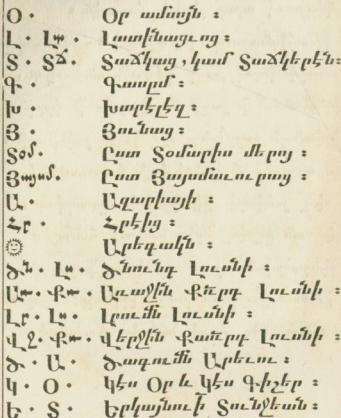 Օ · Օր ամսոյն :
Լ · Լտ · Լատինացւոց :
Տ · ՏՃ · Տաճկաց , կամ Տաճկերէն :
Գ · Գաւառ :
Խ · Խարէլէզ :
Յ · Յունաց :
Տօմ · Ըստ Տօմարիս մերոյ :
Յայսմ · Ըստ Յայսմաւուրաց :
Ա · Ազարիայի :
Հր · Հրէից :
Արեգակն :
Ծն · Լս · Ծնունդ Լուսնի :
Առ · Քռ · Առաջին Քառրդ Լուսնի :
Լր · Լս · Լրումն Լուսնի :
Վջ · Քռ · Վերջին Քառրդ Լուսնի :
Ծ · Ա · Ծագումն Արեւու :
Կ · Օ · Կէս Օր և Կէս Գիշեր :
Ե · Տ · Երկայնութի Տունջեան :